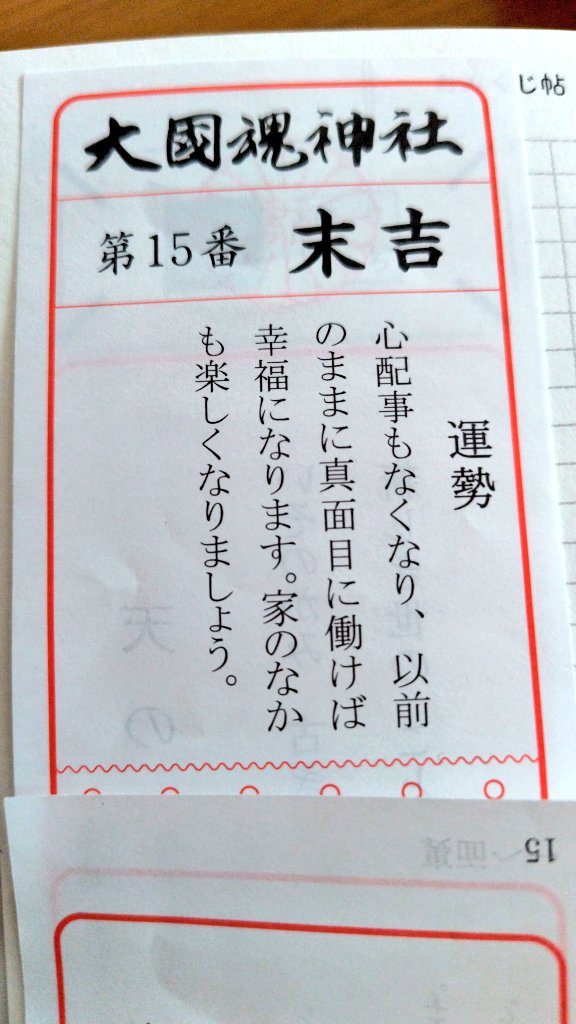 じ帖
大國魂神社
第15番 末吉
運勢
心配事もなくなり、以前
のままに真面目に働けば
幸福になります。家のなか
も楽しくなりましょう。
15